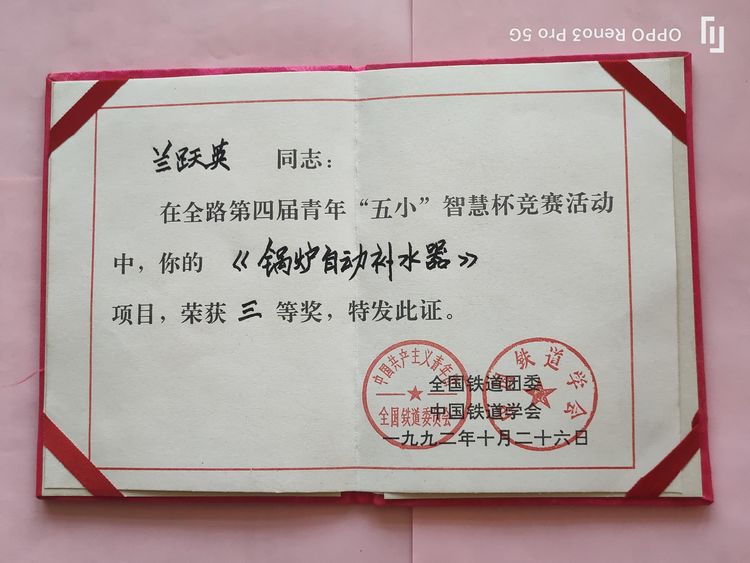 OPPO Reno3 Pro 5G
兰跃英 同志：
在全路第四届青年“五小”智慧杯竞赛活动
中，你的《锅炉自动补水器》
项目，荣获三等奖，特发此证。
中国共产主义青年团
全国铁道委员会
中国铁道学会
全国铁道团委
中国铁道学会
一九九二年十月二十六日